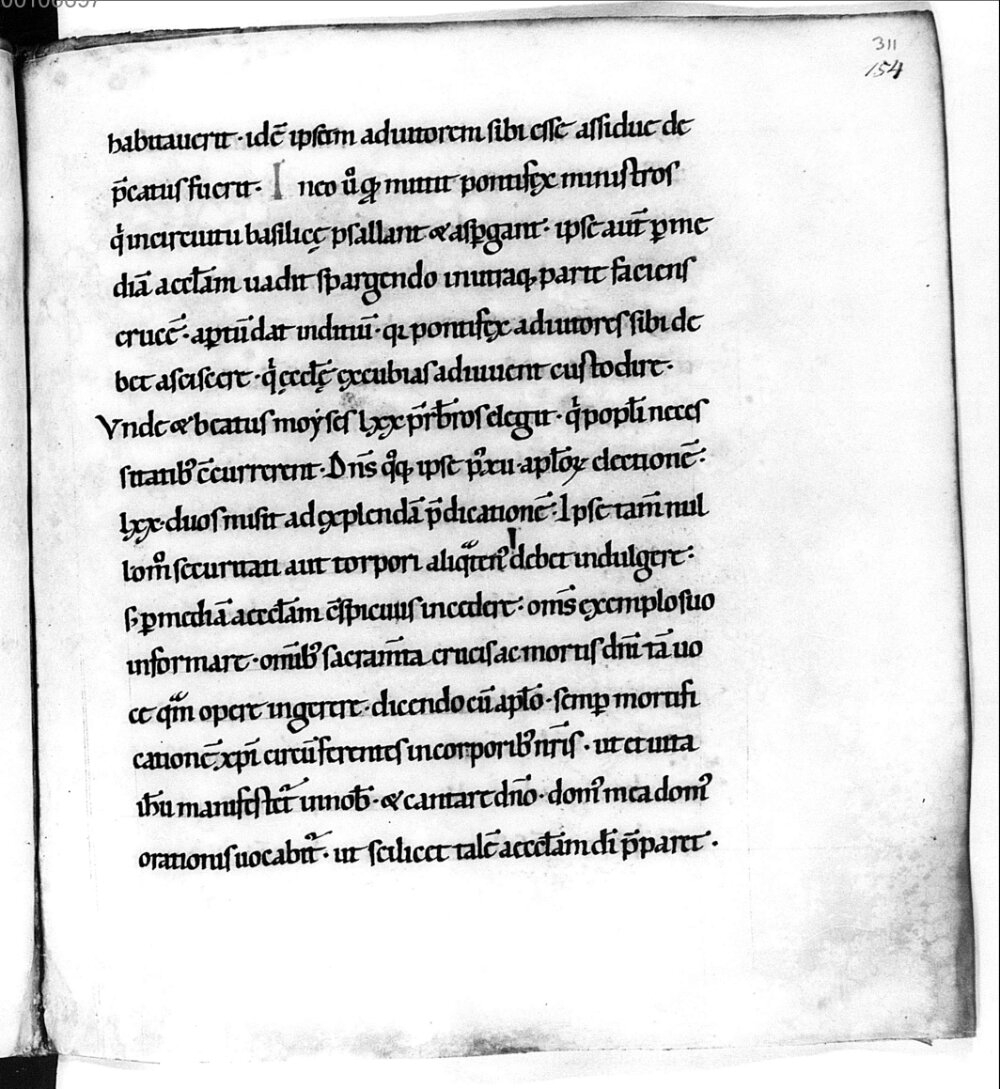 311
154
habitauerit · idē ipsum adiutorem sibi esse assidue de
p̄catus fuerit · In eo ů qd mittit pontifex ministros
q̍ in circuitu basilicę psallant & aspgant · ipse aut̄ p me
diā aecclam uadit spargendo in utraq; parte faciens
crucē · aptū dat inditiū · qi pontifex adiutores sibi de
bet asciscere · q̍ ęcclę excubias adiuuent custodire ·
Vnde & beatus moẏses lxx prb̄ros elegit · q̍ popl̄i neces
sitatib; c̄currerent · Dn̄s qoq; ipse p̄ter xii · aplo̅ꝝ electionē :
lxx · duos misit ad explendā p̄dicationē : Ipse tam̄ nul
lom̊ securitati aut torpori aliqaten' debet indulgere :
s; p mediā aecclam c̄spicuus incedere : om̄s exemplo suo
informare · om̄ib; sacram̄ta crucis ac mortis dn̄i tā uo
ce qam opere ingerere · dicendo cū aplo̅ · semp mortifi
cationē xp̄i circūferentes in corporib; nr̄is · ut et uita
ih̄u manifestet̃ in nob̄ · & cantare dn̄o · dom' mea dom'
orationis uocabit̃ · ut scilicet talē aecclam d̄i p̄paret ·